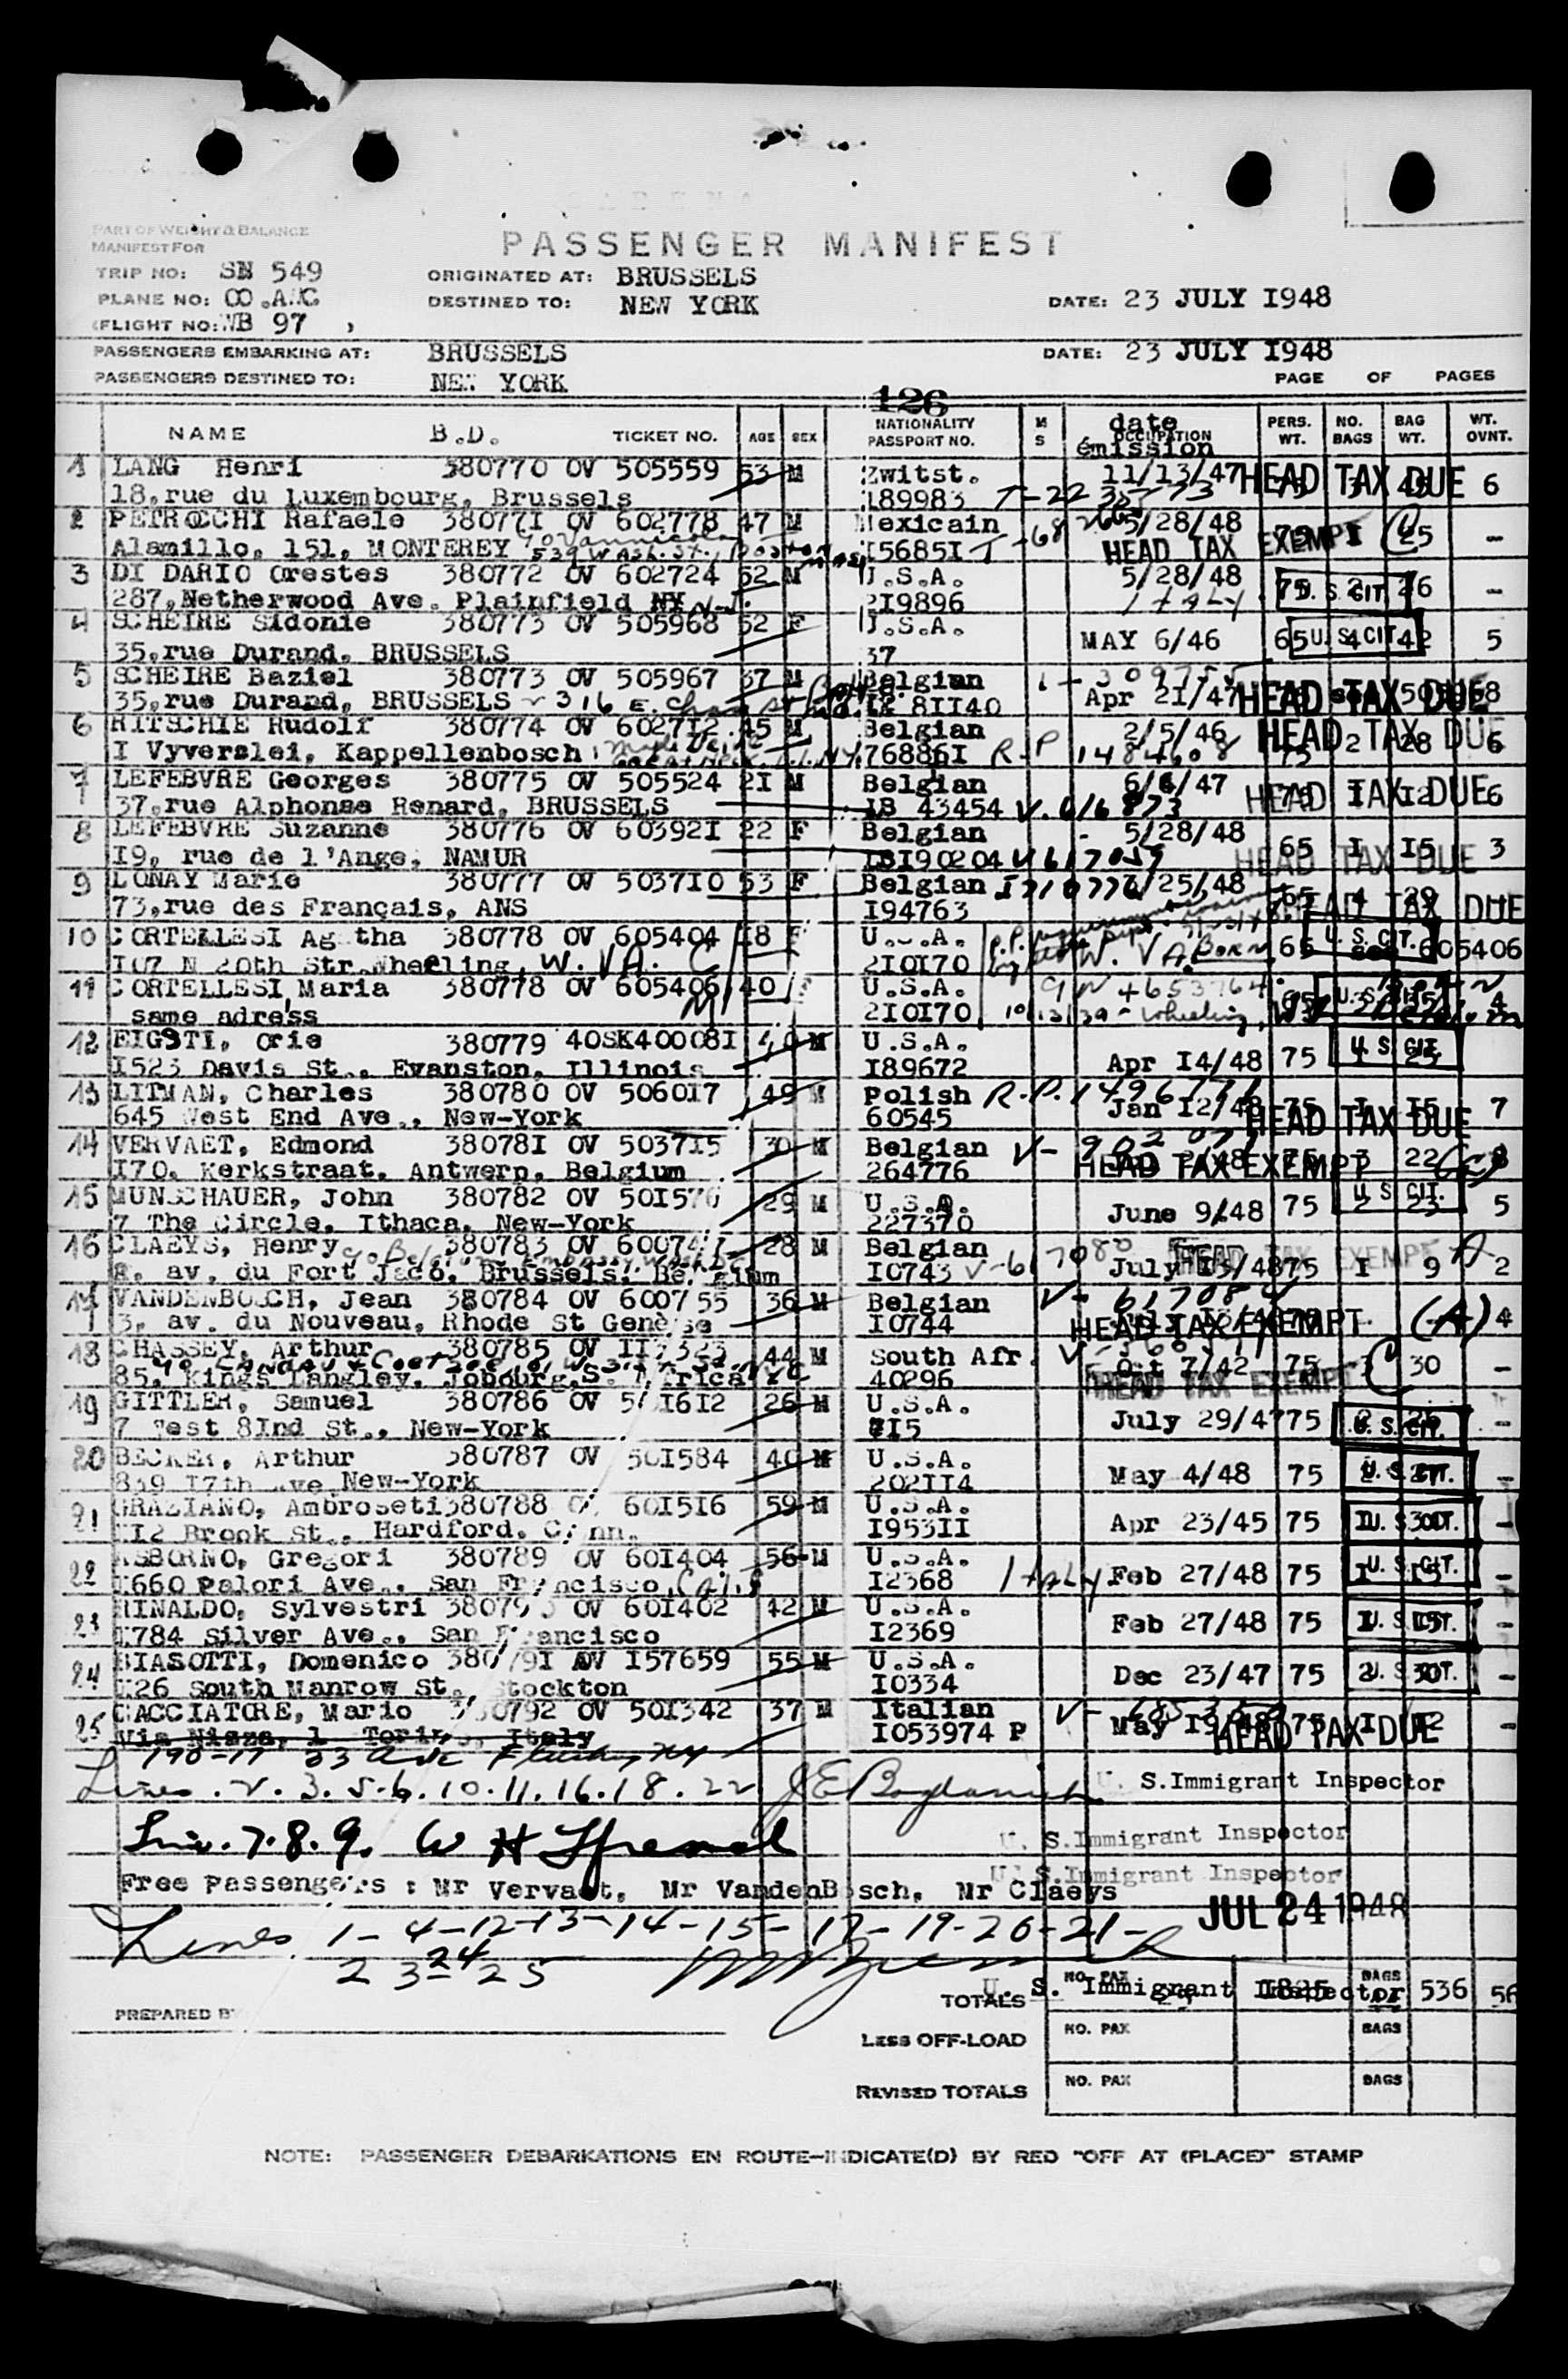 PART OF WEIGHT & BALANCE
MANIFEST FOR
PASSENGER MANIFEST
TRIP NO: SN 549
ORIGINATED AT: BRUSSELS
PLANE NO: OO.AWC
DESTINED TO: NEW YORK
DATE: 23 JULY I948
(FLIGHT NO: WB 97 )
PASSENGERS EMBARKING AT: BRUSSELS
DATE: 23 JULY I948
PASSENGERS DESTINED TO: NEW YORK
PAGE OF PAGES
126
NAME B.D. TICKET NO. AGE SEX NATIONALITY PASSPORT NO. M S date émission OCCUPATION PERS. WT. NO. BAGS BAG WT. WT. OVNT.
1 LANG Henri 380770 OV 505559 53 M Zwitst. 11/13/47 HEAD TAX DUE 6
18,rue du Luxembourg, Brussels 189983
2 PETROCCHI Rafaele 38077I OV 602778 47 M Mexicain 5/28/48 HEAD TAX EXEMPT -
Alamillo, 151, MONTEREY 539 Wash. St., Boston Mass I5685I
3 DI DARIO Orestes 380772 OV 602724 52 M U.S.A. 5/28/48 75 U. S. CIT. 26 -
287,Netherwood Ave. Plainfield NY N.J. 2I9896 Italy
4 SCHEIRE Sidonie 380773 OV 505968 52 F U.S.A. MAY 6/46 65 U. S. CIT. 42 5
35,rue Durand, BRUSSELS 37
5 SCHEIRE Baziel 380773 OV 505967 37 M Belgian Apr 2I/47 HEAD TAX DUE
35,rue Durand, BRUSSELS 316 E. 8II40
6 RITSCHIE Rudolf 380774 OV 602712 45 M Belgian 2/5/46 HEAD TAX DUE 6
I Vyverslei, Kappellenbosch 76886I R-P 1484608 75 2 28
7 LEFEBVRE Georges 380775 OV 505524 2I M Belgian 6/6/47 HEAD TAX DUE 6
37,rue Alphonse Renard, BRUSSELS 43454 V.616873
8 LEFEBVRE Suzanne 380776 OV 60392I 22 F Belgian 5/28/48 65 I I5 3
I9, rue de l'Ange, NAMUR HEAD TAX DUE
9 LONAY Marie 380777 OV 503710 53 F Belgian /25/48 HEAD TAX DUE
73,rue des Français, ANS I94763
10 CORTELLESI Agatha 380778 OV 605404 I8 F U.S.A. 65 U. S. CIT. 605406
I07 N 20th Str.Wheeling, W. VA. 2I0I70 W. VA. Born
11 CORTELLESI Maria 380778 OV 605406 40 U.S.A. 65 4
same adress 2I0I70 10/13/39 - Wheeling,
12 EIGSTI, Orie 380779 40SK40008I 40 M U.S.A. Apr I4/48 75 U. S. CIT.
I523 Davis St., Evanston, Illinois I89672
13 LITMAN, Charles 380780 OV 506017 49 M Polish Jan I2/48 75 I I5 7
645 West End Ave., New-York 60545 HEAD TAX DUE
14 VERVAET, Edmond 38078I OV 503715 30 M Belgian HEAD TAX EXEMPT 22
I70, Kerkstraat, Antwerp, Belgium 264776
15 MUNSCHAUER, John 380782 OV 501570 29 M U.S.A. June 9/48 75 U. S. CIT. 2 23 5
7 The Circle, Ithaca, New-York 227370
16 CLAEYS, Henry 380783 OV 28 M Belgian July I3/48 75 I 9 2
8, av. du Fort Jaco, Brussels, Belgium I0743 V-617080 HEAD TAX EXEMPT A
17 VANDENBOSCH, Jean 380784 OV 600755 36 M Belgian V- 4
3, av. du Nouveau, Rhode St Genèse I0744 HEAD TAX EXEMPT (A)
18 CHASSEY, Arthur 380785 OV 44 M South Afr. Oct 7/42 75 30 -
85, Kings Langley, Jobourg,S. Africa 40296 HEAD TAX EXEMPT
19 GITTLER, Samuel 380786 OV 50I6I2 26 M U.S.A. July 29/47 75 U. S. CIT. -
7 West 8Ind St., New-York
20 BECKER, Arthur 380787 OV 501584 40 M U.S.A. May 4/48 75 U. S. CIT. -
839 I7th Ave New-York 202II4
21 GRAZIANO, Ambroseti 380788 OV 60I5I6 59 M U.S.A. Apr 23/45 75 U. S. CIT. -
II2 Brook St., Hardford, Conn. I953II
22 OSBORNO, Gregori 380789 OV 60I404 56 M U.S.A. Feb 27/48 75 U. S. CIT. -
I660 Palori Ave., San Francisco, Calif I2368 Italy
23 RINALDO, Sylvestri 380790 OV 60I402 42 M U.S.A. Feb 27/48 75 U. S. CIT. -
I784 Silver Ave., San Francisco I2369
24 BIASOTTI, Domenico 38079I OV I57659 55 M U.S.A. Dec 23/47 75 U. S. CIT. -
I26 South Manrow St., Stockton I0334
25 CACCIATORE, Mario 380792 OV 501342 37 M Italian May I9/48 75 I I2 -
Via Nizza, 1 Torino, Italy I053974 P HEAD TAX DUE
190-17 23 Ave Flushing NY
Lines. 2. 3. 5-6. 10. 11. 16. 18. 22 U. S.Immigrant Inspector
7. 8. 9. W H U. S.Immigrant Inspector
U. S.Immigrant Inspector
Free Passengers : Mr Vervaet, Mr VandenBosch, Mr Claeys
JUL 24 1948
Lines 1-4-12-13-14-15-17-19-20-21-
23-24 25
U. S. Immigrant Inspector
TOTALS NO. PAX 1825 BAGS 536 56
PREPARED BY
LESS OFF-LOAD NO. PAX BAGS
REVISED TOTALS NO. PAX BAGS
NOTE: PASSENGER DEBARKATIONS EN ROUTE-INDICATE(D) BY RED "OFF AT (PLACE)" STAMP